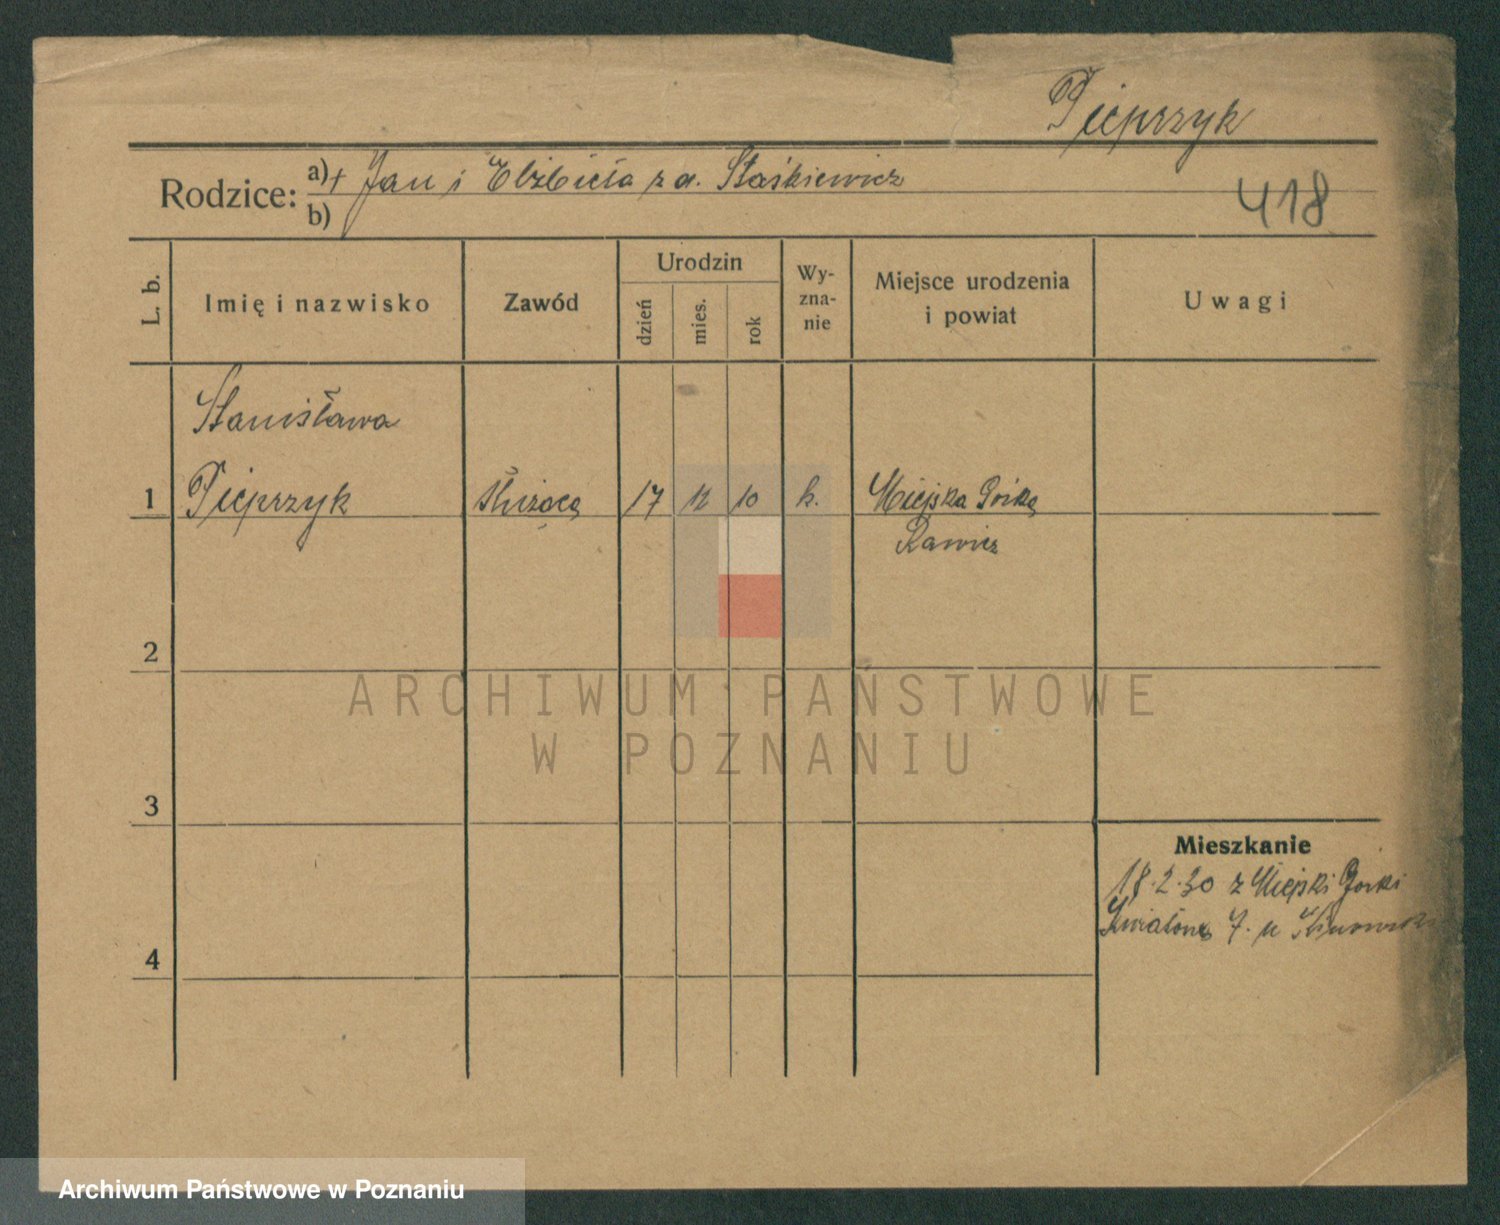 Pieprzyk
Rodzice: a) + Jan i Elżbieta z d. Staśkiewicz
b)
418
L. b.
Imię i nazwisko
Zawód
Urodzin
dzień
mies.
rok
Wy-
zna-
nie
Miejsce urodzenia
i powiat
Uwagi
Stanisława
1 Pieprzyk służąca 17 12 10 k. Miejska Górka
Rawicz
2
ARCHIWUM PAŃSTWOWE
W POZNANIU
3
Mieszkanie
18.2.30 z Miejski Gorki
Kwiatowa 7. u
4
Archiwum Państwowe w Poznaniu